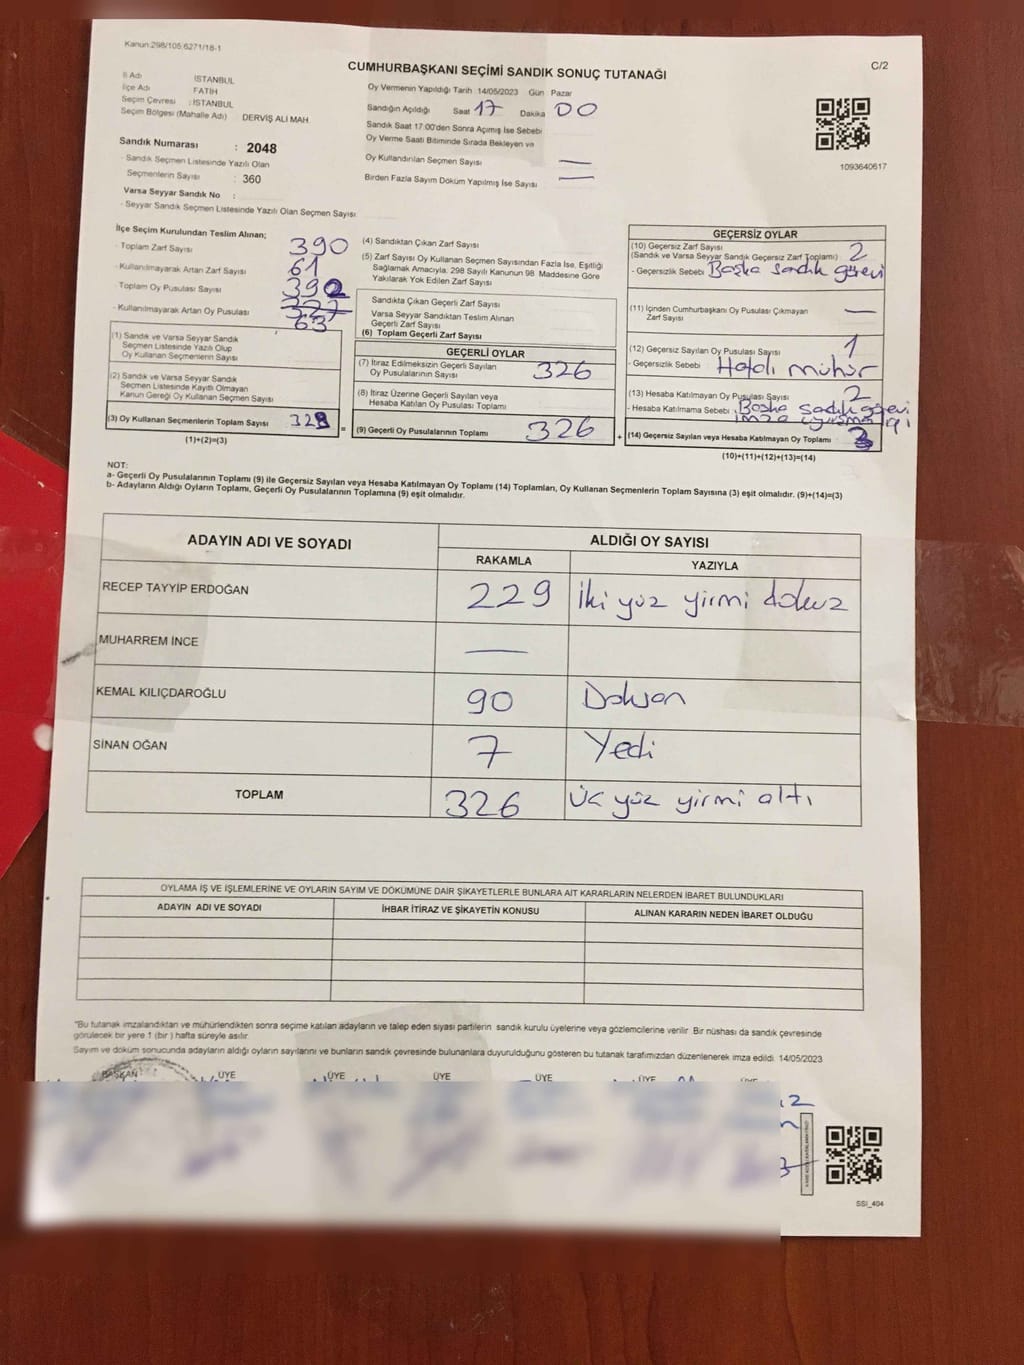 Kanun:298/105,6271/18-1
CUMHURBAŞKANI SEÇİMİ SANDIK SONUÇ TUTANAĞI
C/2
İl Adı : İSTANBUL
İlçe Adı FATİH
Seçim Çevresi : İSTANBUL
Seçim Bölgesi (Mahalle Adı) DERVİŞ ALİ MAH.
Oy Vermenin Yapıldığı Tarih :14/05/2023 Gün : Pazar
Sandığın Açıldığı Saat 17 Dakika 00
Sandık Saat 17:00'den Sonra Açımış İse Sebebi
Oy Verme Saati Bitiminde Sırada Bekleyen ve
Oy Kullandırılan Seçmen Sayısı —
Birden Fazla Sayım Döküm Yapılmış İse Sayısı —
1093640617
Sandık Numarası : 2048
- Sandık Seçmen Listesinde Yazılı Olan
Seçmenlerin Sayısı : 360
Varsa Seyyar Sandık No :
- Seyyar Sandık Seçmen Listesinde Yazılı Olan Seçmen Sayısı
İlçe Seçim Kurulundan Teslim Alınan;
- Toplam Zarf Sayısı 390
- Kullanılmayarak Artan Zarf Sayısı 61
- Toplam Oy Pusulası Sayısı 392
- Kullanılmayarak Artan Oy Pusulası 327 63
(1) Sandık ve Varsa Seyyar Sandık
Seçmen Listesinde Yazılı Olup
Oy Kullanan Seçmenlerin Sayısı
(2) Sandık ve Varsa Seyyar Sandık
Seçmen Listesinde Kayıtlı Olmayan
Kanun Gereği Oy Kullanan Seçmen Sayısı
(3) Oy Kullanan Seçmenlerin Toplam Sayısı 328 =
(1)+(2)=(3)
(4) Sandıktan Çıkan Zarf Sayısı
(5) Zarf Sayısı Oy Kullanan Seçmen Sayısından Fazla İse, Eşitliği
Sağlamak Amacıyla, 298 Sayılı Kanunun 98 Maddesine Göre
Yakılarak Yok Edilen Zarf Sayısı
Sandıkta Çıkan Geçerli Zarf Sayısı
Varsa Seyyar Sandıktan Teslim Alınan
Geçerli Zarf Sayısı
(6) Toplam Geçerli Zarf Sayısı
GEÇERLİ OYLAR
(7) İtiraz Edilmeksizin Geçerli Sayılan
Oy Pusulalarının Sayısı 326
(8) İtiraz Üzerine Geçerli Sayılan veya
Hesaba Katılan Oy Pusulası Toplamı
(9) Geçerli Oy Pusulalarının Toplamı 326 +
GEÇERSİZ OYLAR
(10) Geçersiz Zarf Sayısı
(Sandık ve Varsa Seyyar Sandık Geçersiz Zarf Toplamı) 2
- Geçersizlik Sebebi Başka sandık görevi
(11) İçinden Cumhurbaşkanı Oy Pusulası Çıkmayan
Zarf Sayısı —
(12) Geçersiz Sayılan Oy Pusulası Sayısı 1
- Geçersizlik Sebebi Hatalı mühür
(13) Hesaba Katılmayan Oy Pusulası Sayısı 2
- Hesaba Katılmama Sebebi Başka sandık görevi
imza
(14) Geçersiz Sayılan veya Hesaba Katılmayan Oy Toplamı 3
(10)+(11)+(12)+(13)=(14)
NOT:
a- Geçerli Oy Pusulalarının Toplamı (9) ile Geçersiz Sayılan veya Hesaba Katılmayan Oy Toplamı (14) Toplamları, Oy Kullanan Seçmenlerin Toplam Sayısına (3) eşit olmalıdır. (9)+(14)=(3)
b- Adayların Aldığı Oyların Toplamı, Geçerli Oy Pusulalarının Toplamına (9) eşit olmalıdır.
ADAYIN ADI VE SOYADI ALDIĞI OY SAYISI
RAKAMLA YAZIYLA
RECEP TAYYİP ERDOĞAN 229 İki yüz yirmi dokuz
MUHARREM İNCE —
KEMAL KILIÇDAROĞLU 90 Doksan
SİNAN OĞAN 7 Yedi
TOPLAM 326 Üç yüz yirmi altı
OYLAMA İŞ VE İŞLEMLERİNE VE OYLARIN SAYIM VE DÖKÜMÜNE DAİR ŞİKAYETLERLE BUNLARA AİT KARARLARIN NELERDEN İBARET BULUNDUKLARI
ADAYIN ADI VE SOYADI İHBAR İTİRAZ VE ŞİKAYETİN KONUSU ALINAN KARARIN NEDEN İBARET OLDUĞU
"Bu tutanak imzalandıktan ve mühürlendikten sonra seçime katılan adayların ve talep eden siyasi partilerin sandık kurulu üyelerine veya gözlemcilerine verilir. Bir nüshası da sandık çevresinde
görülecek bir yere 1 (bir ) hafta süreyle asılır.
Sayım ve döküm sonucunda adayların aldığı oyların sayılarını ve bunların sandık çevresinde bulunanlara duyurulduğunu gösteren bu tutanak tarafımızdan düzenlenerek imza edildi. 14/05/2023
BAŞKAN ÜYE ÜYE ÜYE ÜYE ÜYE
SSI_404